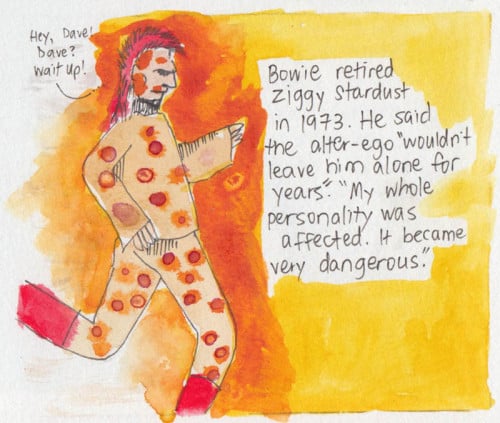 Hey, Dave!
Dave?
Wait up!
Bowie retired
Ziggy Stardust
in 1973. He said
the alter-ego "wouldn't
leave him alone for
years." "My whole
personality was
affected. It became
very dangerous."